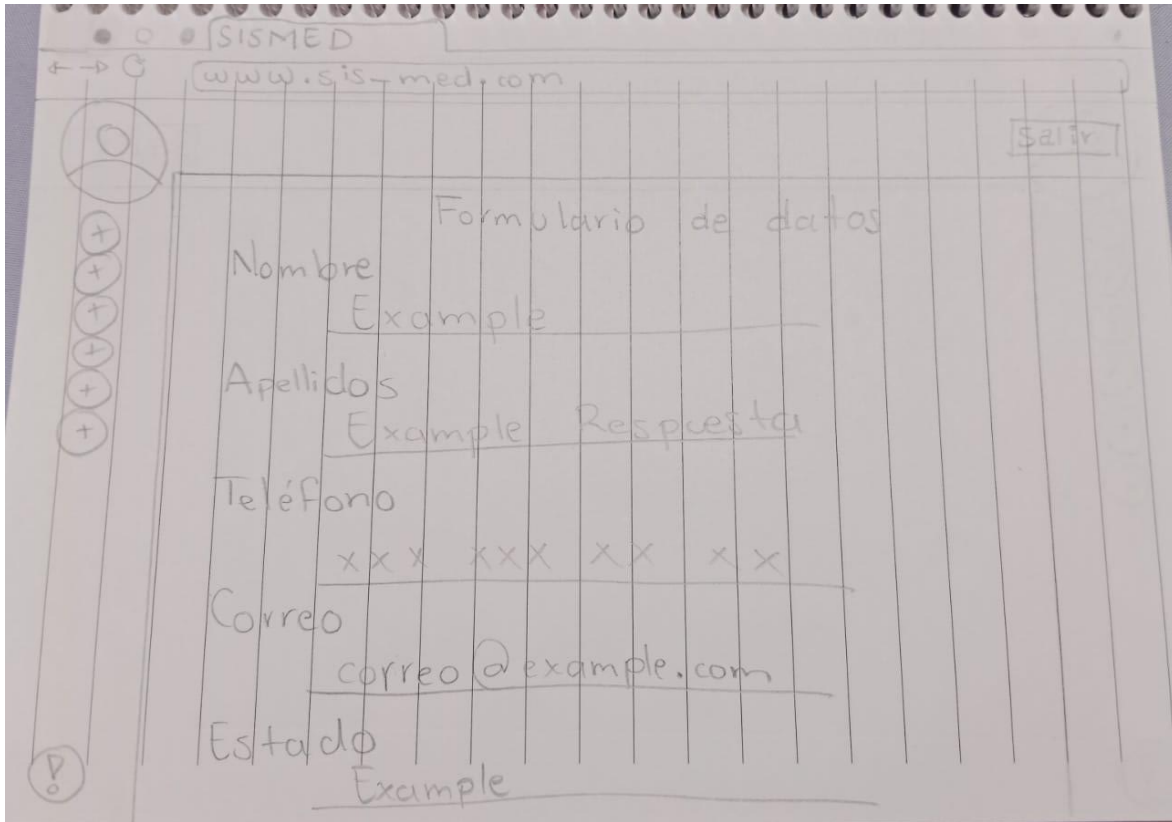 SISMED
www.sis-med.com
Salir
Formulario de datos
Nombre
Example
Apellidos
Example Respuesta
Teléfono
xxx xxx xx xx
Correo
correo@example.com
Estado
Example